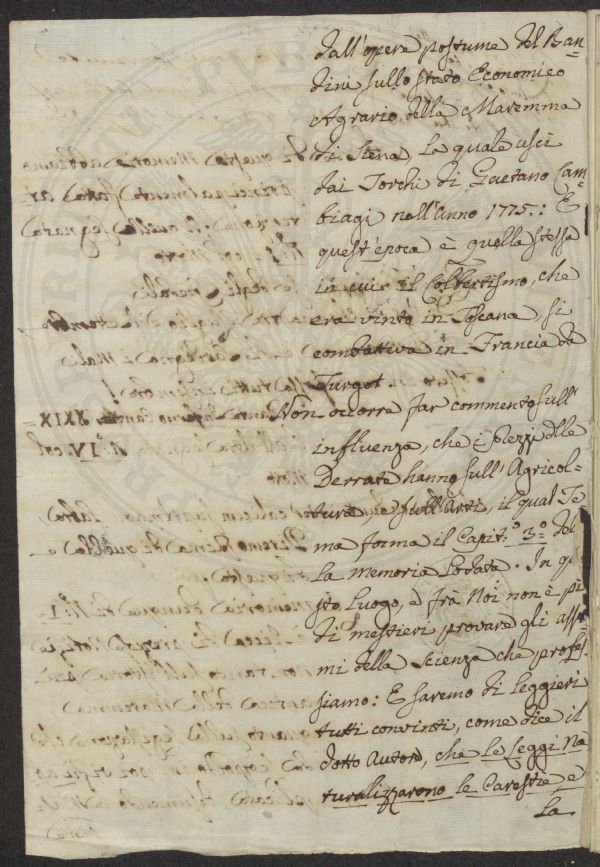 dall'opere postume del Ban=
dini sullo stato Economico
Agrario della Maremma
di Siena, la quale uscì
dai Torchi di Gaetano Cam=
biagi nell'Anno 1775.: E
quest'epoca è quella stessa
in cui il Colbertismo, che
era vinto in Toscana, si
combatteva in Francia da
Turgot.
Non occorre far commento sull'
influenza, che i Prezzi delle
Derrate hanno sull'Agricol=
tura, e sull'Arti, il qual Te
ma forma il Capit.º 3.º del
la Memoria Lodata. In q
sto Luogo, e frà Noi non è più
di mestieri provare gli assio
mi della Scienza che profes
siamo: E saremo di leggieri
tutti convinti, come dice il
dotto Autore, che le Leggi Na
turalizzarono le Carestie, e
la